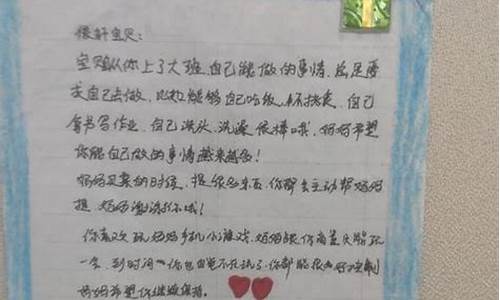 宝贝:
宝贝从你上了大班,自己能做的事情,总是要
自己去做,比如能够自己吃饭,不挑食,自己
看书写作业,自己洗头、洗澡,很棒哦,妈妈希望
你能自己做的事情越来越多!
妈妈买菜的时候,提很多东西,你都会主动帮妈妈
提,妈妈谢谢你哦!
你喜欢玩妈妈手机小游戏,妈妈跟你商量只能玩
一会,到时间你也自觉不在玩了,你都能很好的控制
妈妈希望你继续保持。